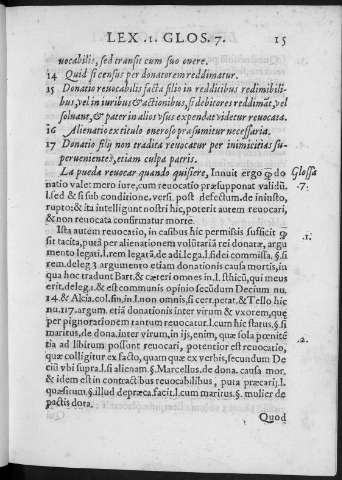 LEX .1. GLOS. 7. 15
uocabilis, sed transit cum suo onere.
14 Quid si census per donatorem reddimatur.
15 Donatio reuocabilis facta filio in redditibus redimibili-
bus, vel in iuribus & actionibus, si debitores reddimãt, vel
soluant, & pater in alios vsus expendat videtur reuocata.
16 Alienatio ex titulo oneroso præsumitur necessaria.
17 Donatio filij non tradita reuocatur per inimicitias su-
peruenientes, etiam culpa patris.
La pueda reuocar quando quisiere, Innuit ergo ꝙ do Glossa
natio vale: mero iure, cum reuocatio præsupponat validũ. 7.
l. sed & si sub conditione. vers. post defectum. de iniusto,
rupto: & ita intelligunt nostri hic, poterit autem reuocari,
& non reuocata confirmatur morte.
Ista autem reuocatio, in casibus hic permissis sufficit ꝙ .1.
sit tacita, putà per alienationem voluntariã rei donatæ, argu
mento legati, l. rem legatã, de adi. lega. l. fidei commissa. §. si
rem. deleg. 3 argumento etiam donationis causa mortis, iu
qua hoc tradunt Bart. & cæteri omnes in l. sthicũ, qui meus
erit. deleg. 1. & est communis opinio secũdum Decium nu.
14. & Alcia. col. fin. in l. non omnis. si cert. petat. & Tello hic
nu. 117. argum. etiã donationis inter virum & vxorem, quæ
per pignorationem tantum reuocatur. l. cum hic status. §. si
maritus, de dona. inter virum, in ijs, enim, quæ sola pœnitẽ .2.
tia ad libitum possunt reuocari, potentior est reuocatio,
quæ colligitur ex facto, quam quæ ex verbis, secundum De
ciũ vbi supra. l. si alienam. §. Marcellus. de dona. causa mor,
& idem est in contractibus reuocabilibus, puta præcarij. l.
quæsitum. §. illud de præca. facit. l. cum maritus. §. mulier de
pactis dota.
Quod